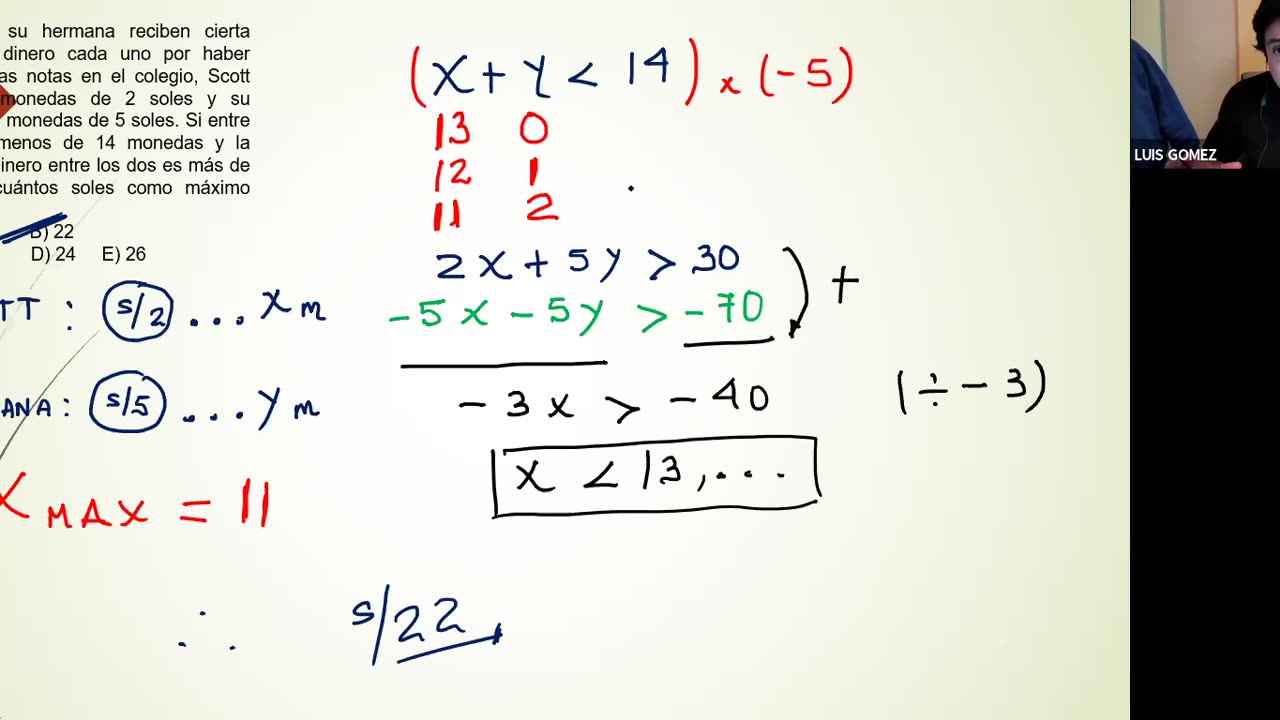 su hermana reciben cierta
dinero cada uno por haber
as notas en el colegio, Scott
monedas de 2 soles y su
monedas de 5 soles. Si entre
menos de 14 monedas y la
inero entre los dos es más de
cuántos soles como máximo
B) 22
D) 24 E) 26
TT : S/2 ... x m
ANA : S/5 ... y m
x MAX = 11
(x + y < 14) x (-5)
13 0
12 1
11 2
2x + 5y > 30
-5x - 5y > -70
+
-3x > -40 (÷ -3)
x < 13, ...
∴ S/22
LUIS GOMEZ